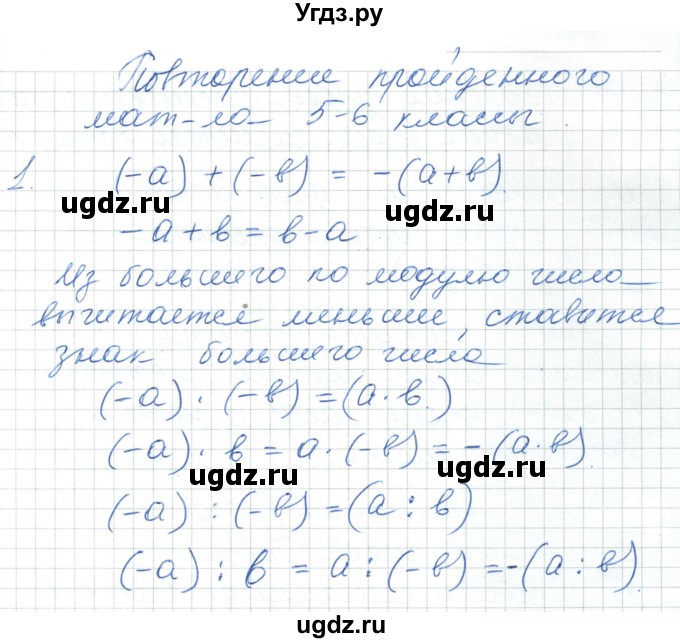 Угдз.ру
Повторение пройденного
мат-ла 5-6 классы.
1. (-а) + (-в) = -(а+в).
ugdz.ru ugdz.ru
-а+в=в-а
Из большего по модулю числа
вычитается меньшее, ставится
знак большего числа
(-а) · (-в) =(а·в.)
(-а) · в = а · (-в) = -(а·в).
ugdz.ru ugdz.ru
(-а) : (-в) =(а : в)
(-а) : в = а : (-в) =-(а : в).
ugdz.ru ugdz.ru